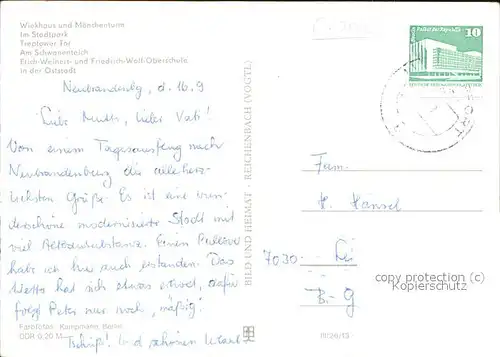 Wiekhaus und Mönchenturm
Im Stadtpark
Treptower Tor
Am Schwanenteich
Erich-Weinert- und Friedrich-Wolf-Oberschule
in der Oststadt
Neubrandenbg, d. 16.9
Liebe Mutti, lieber Vati!
Von einem Tagesausflug nach
Neubrandenburg die allerherz-
lichsten Grüße. Es ist eine wun-
derschöne modernisierte Stadt mit
viel Altbausubstanz. Einen Pullover
habe ich hier auch erstanden. Das
Wetter hat sich etwas erholt, dafür
folgt Peter nur noch „mäßig".
Tschüß! Und schönen Urlaub
Farbfotos: Kampmann, Berlin
DDR 0,20 M
BILD UND HEIMAT · REICHENBACH (VOGTL)
Palast der Republik
10
Fam.
H. Hänsel
7030
B. 9
III/26/13
copyright protection (c)
Ansichtskarten